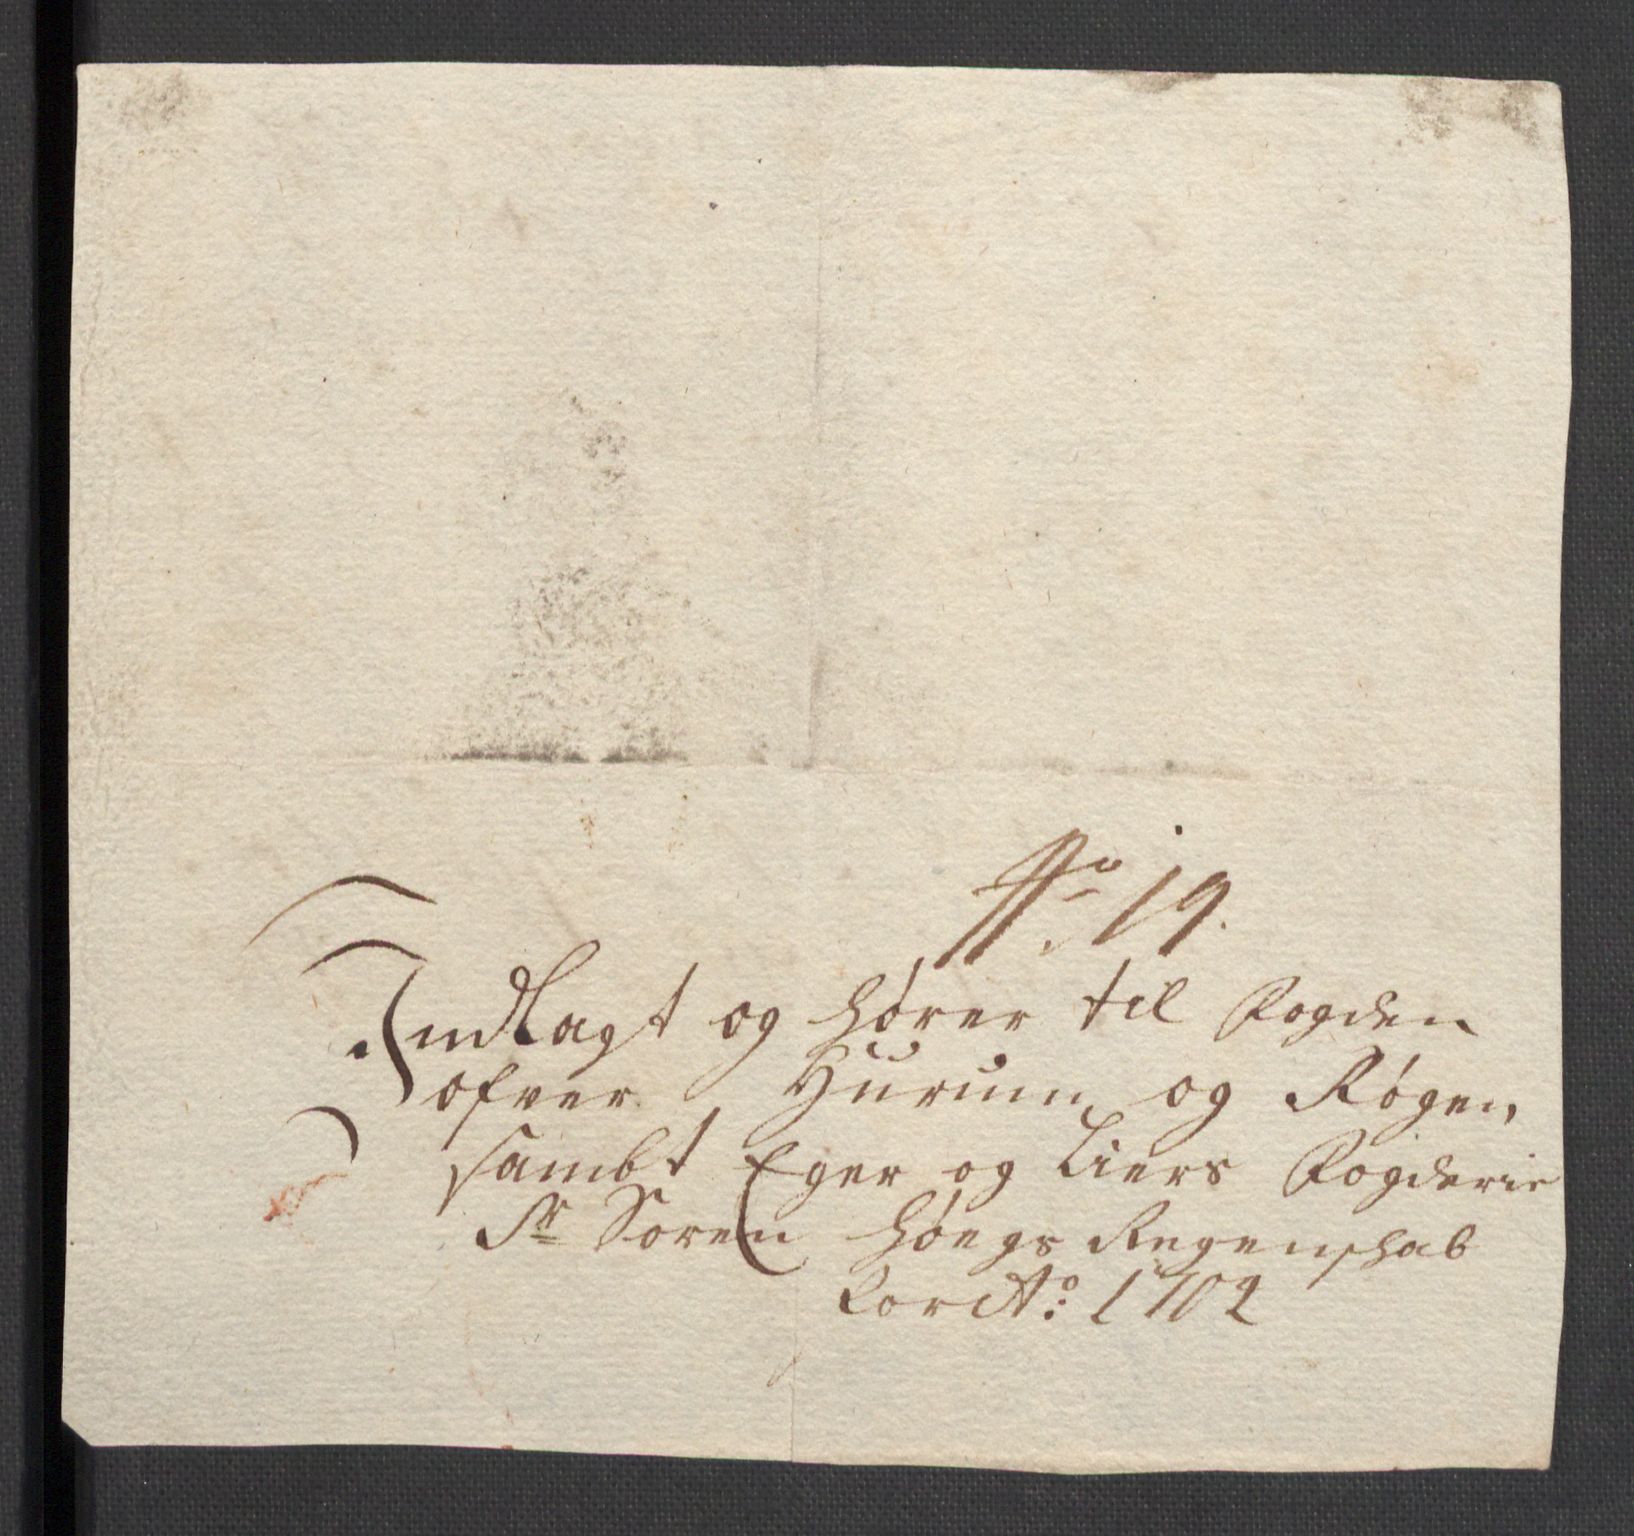 No 19.
Indlagt og hører til Fogden
ofver Hurum og Røgen,
sambt Eger og Liers Fogderie
Sr Soren Høegs Regenshab
for Ao: 1702